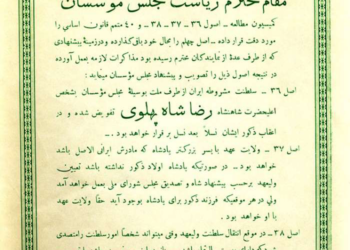 مقام محترم ریاست مجلس مؤسسان
کمیسیون مطالعه - اصول ۳۶ - ۳۷ - ۳۸ - و ۴۰ متمم قانون اساسی را
مورد دقت قرار داده - اصل چهلم را بحال خود باقی گذارده و در زمینهٔ پیشنهادی
که از طرف عدهٔ از نمایندگان محترم رسیده بود مذاکرات لازمه بعمل آورده
در نتیجه اصول ذیل را تصویب و پیشنهاد مجلس مؤسسان مینماید :
اصل ۳۶ - سلطنت مشروطه ایران از طرف ملت بوسیلهٔ مجلس مؤسسان بشخص
اعلیحضرت شاهنشاه رضا شاه پهلوی تفویض شده و در
اعقاب ذکور ایشان نسلاً بعد نسل برقرار خواهد بود .
اصل ۳۷ - ولایت عهد با پسر بزرگتر پادشاه که مادرش ایرانی الاصل باشد
خواهد بود . در صورتیکه پادشاه اولاد ذکور نداشته باشد تعیین
ولیعهد برحسب پیشنهاد شاه و تصدیق مجلس شورای ملی بعمل خواهد آمد
ولی در هر موقعیکه فرزند ذکور برای پادشاه بوجود آید حقاً ولایت عهد
با او خواهد بود .
اصل ۳۸ - در موقع انتقال سلطنت ولیعهد وقتی میتواند شخصاً امور سلطنت را متصدی